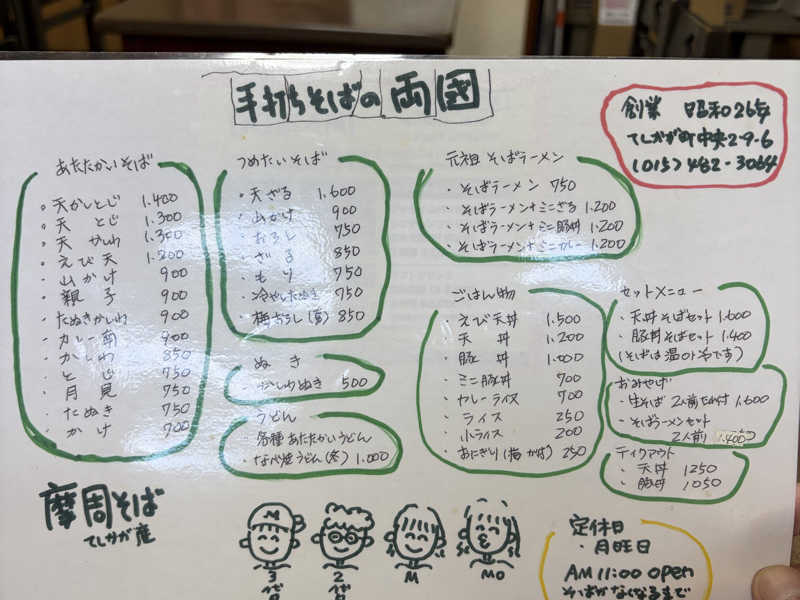 手打ちそばの両国
創業 昭和26年
てしかが町中央2-9-6
(015)482-3064
あたたかいそば
・天かしとじ 1.400
・天とじ 1.300
・天かしわ 1.300
・えび天 1.200
・山かけ 900
・親子 900
・たぬきかしわ 900
・カレー南 900
・かしわ 850
・とじ 750
・月見 750
・たぬき 750
・かけ 700
つめたいそば
・天ざる 1.600
・山かけ 900
・おろし 750
・ざる 850
・もり 750
・冷やしたぬき 750
・梅おろし(夏) 850
ぬき
・かしわぬき 500
うどん
・各種あたたかいうどん
・なべ焼うどん(冬) 1.000
元祖そばラーメン
・そばラーメン 750
・そばラーメン+ミニざる 1.200
・そばラーメン+ミニ豚丼 1.200
・そばラーメン+ミニカレー 1.200
ごはん物
・えび天丼 1.500
・天丼 1.200
・豚丼 1.000
・ミニ豚丼 700
・カレーライス 700
・ライス 250
・小ライス 200
・おにぎり(梅かけ) 250
セットメニュー
・天丼そばセット 1.600
・豚丼そばセット 1.400
(そばは温or冷です)
おみやげ
・生そば 2人前たれ付 1.600
・そばラーメンセット
2人前 1.400
テイクアウト
・天丼 1250
・豚丼 1050
摩周そば
てしかが産
3代目
2代目
M
MO
定休日
・月旺日
AM 11:00 open
そばがなくなるまで